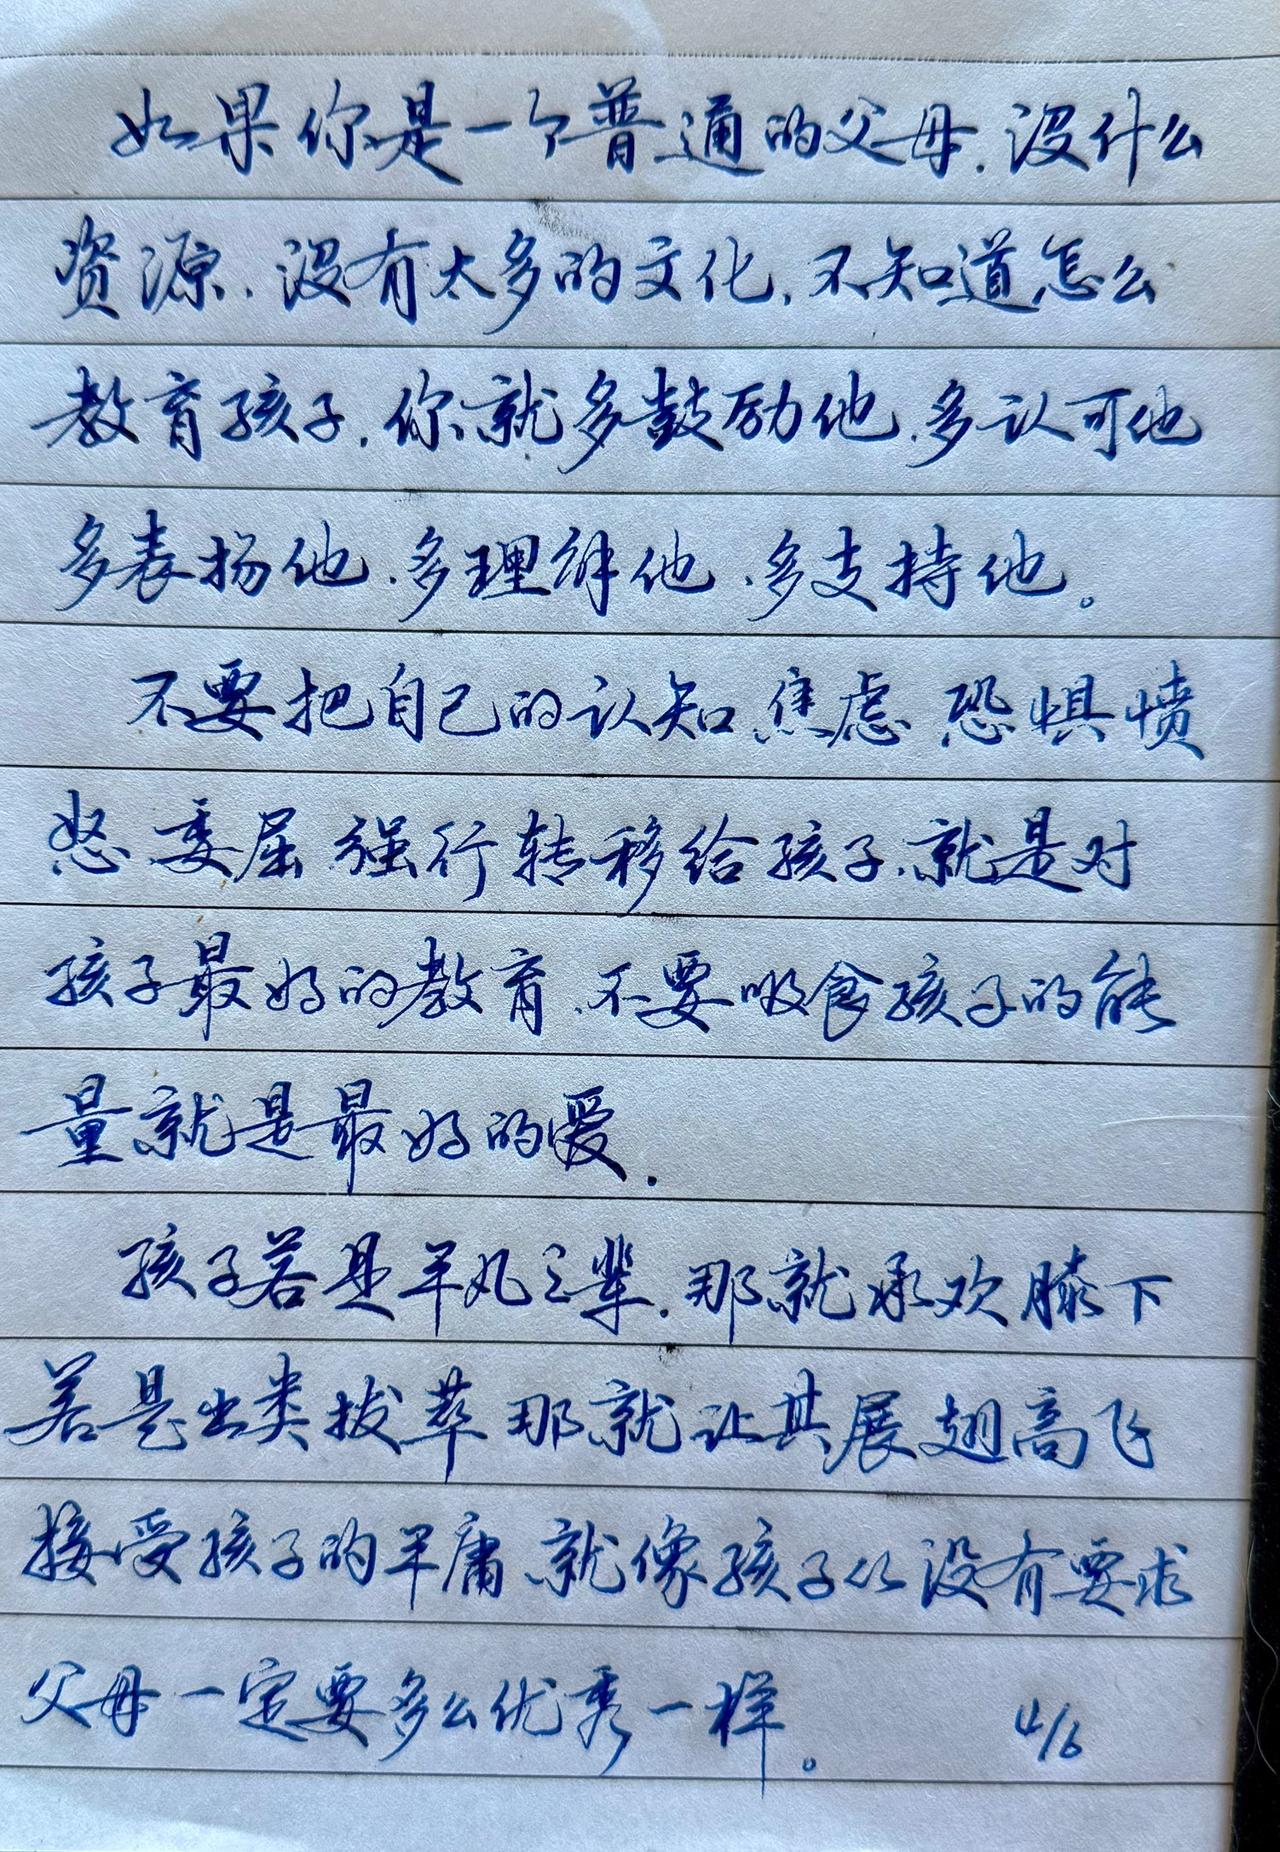 如果你是一个普通的父母.没什么
资源.没有太多的文化,不知道怎么
教育孩子.你就多鼓励他.多认可他
多表扬他.多理解他.多支持他。
不要把自己的认知、焦虑 恐惧愤
怒、委屈 强行转移给孩子、就是对
孩子最好的教育、不要吸食孩子的能
量就是最好的爱.
孩子若是平凡之辈.那就承欢膝下
若是出类拔萃 那就让其展翅高飞
接受孩子的平庸、就像孩子从没有要求
父母一定要多么优秀一样。 4/6